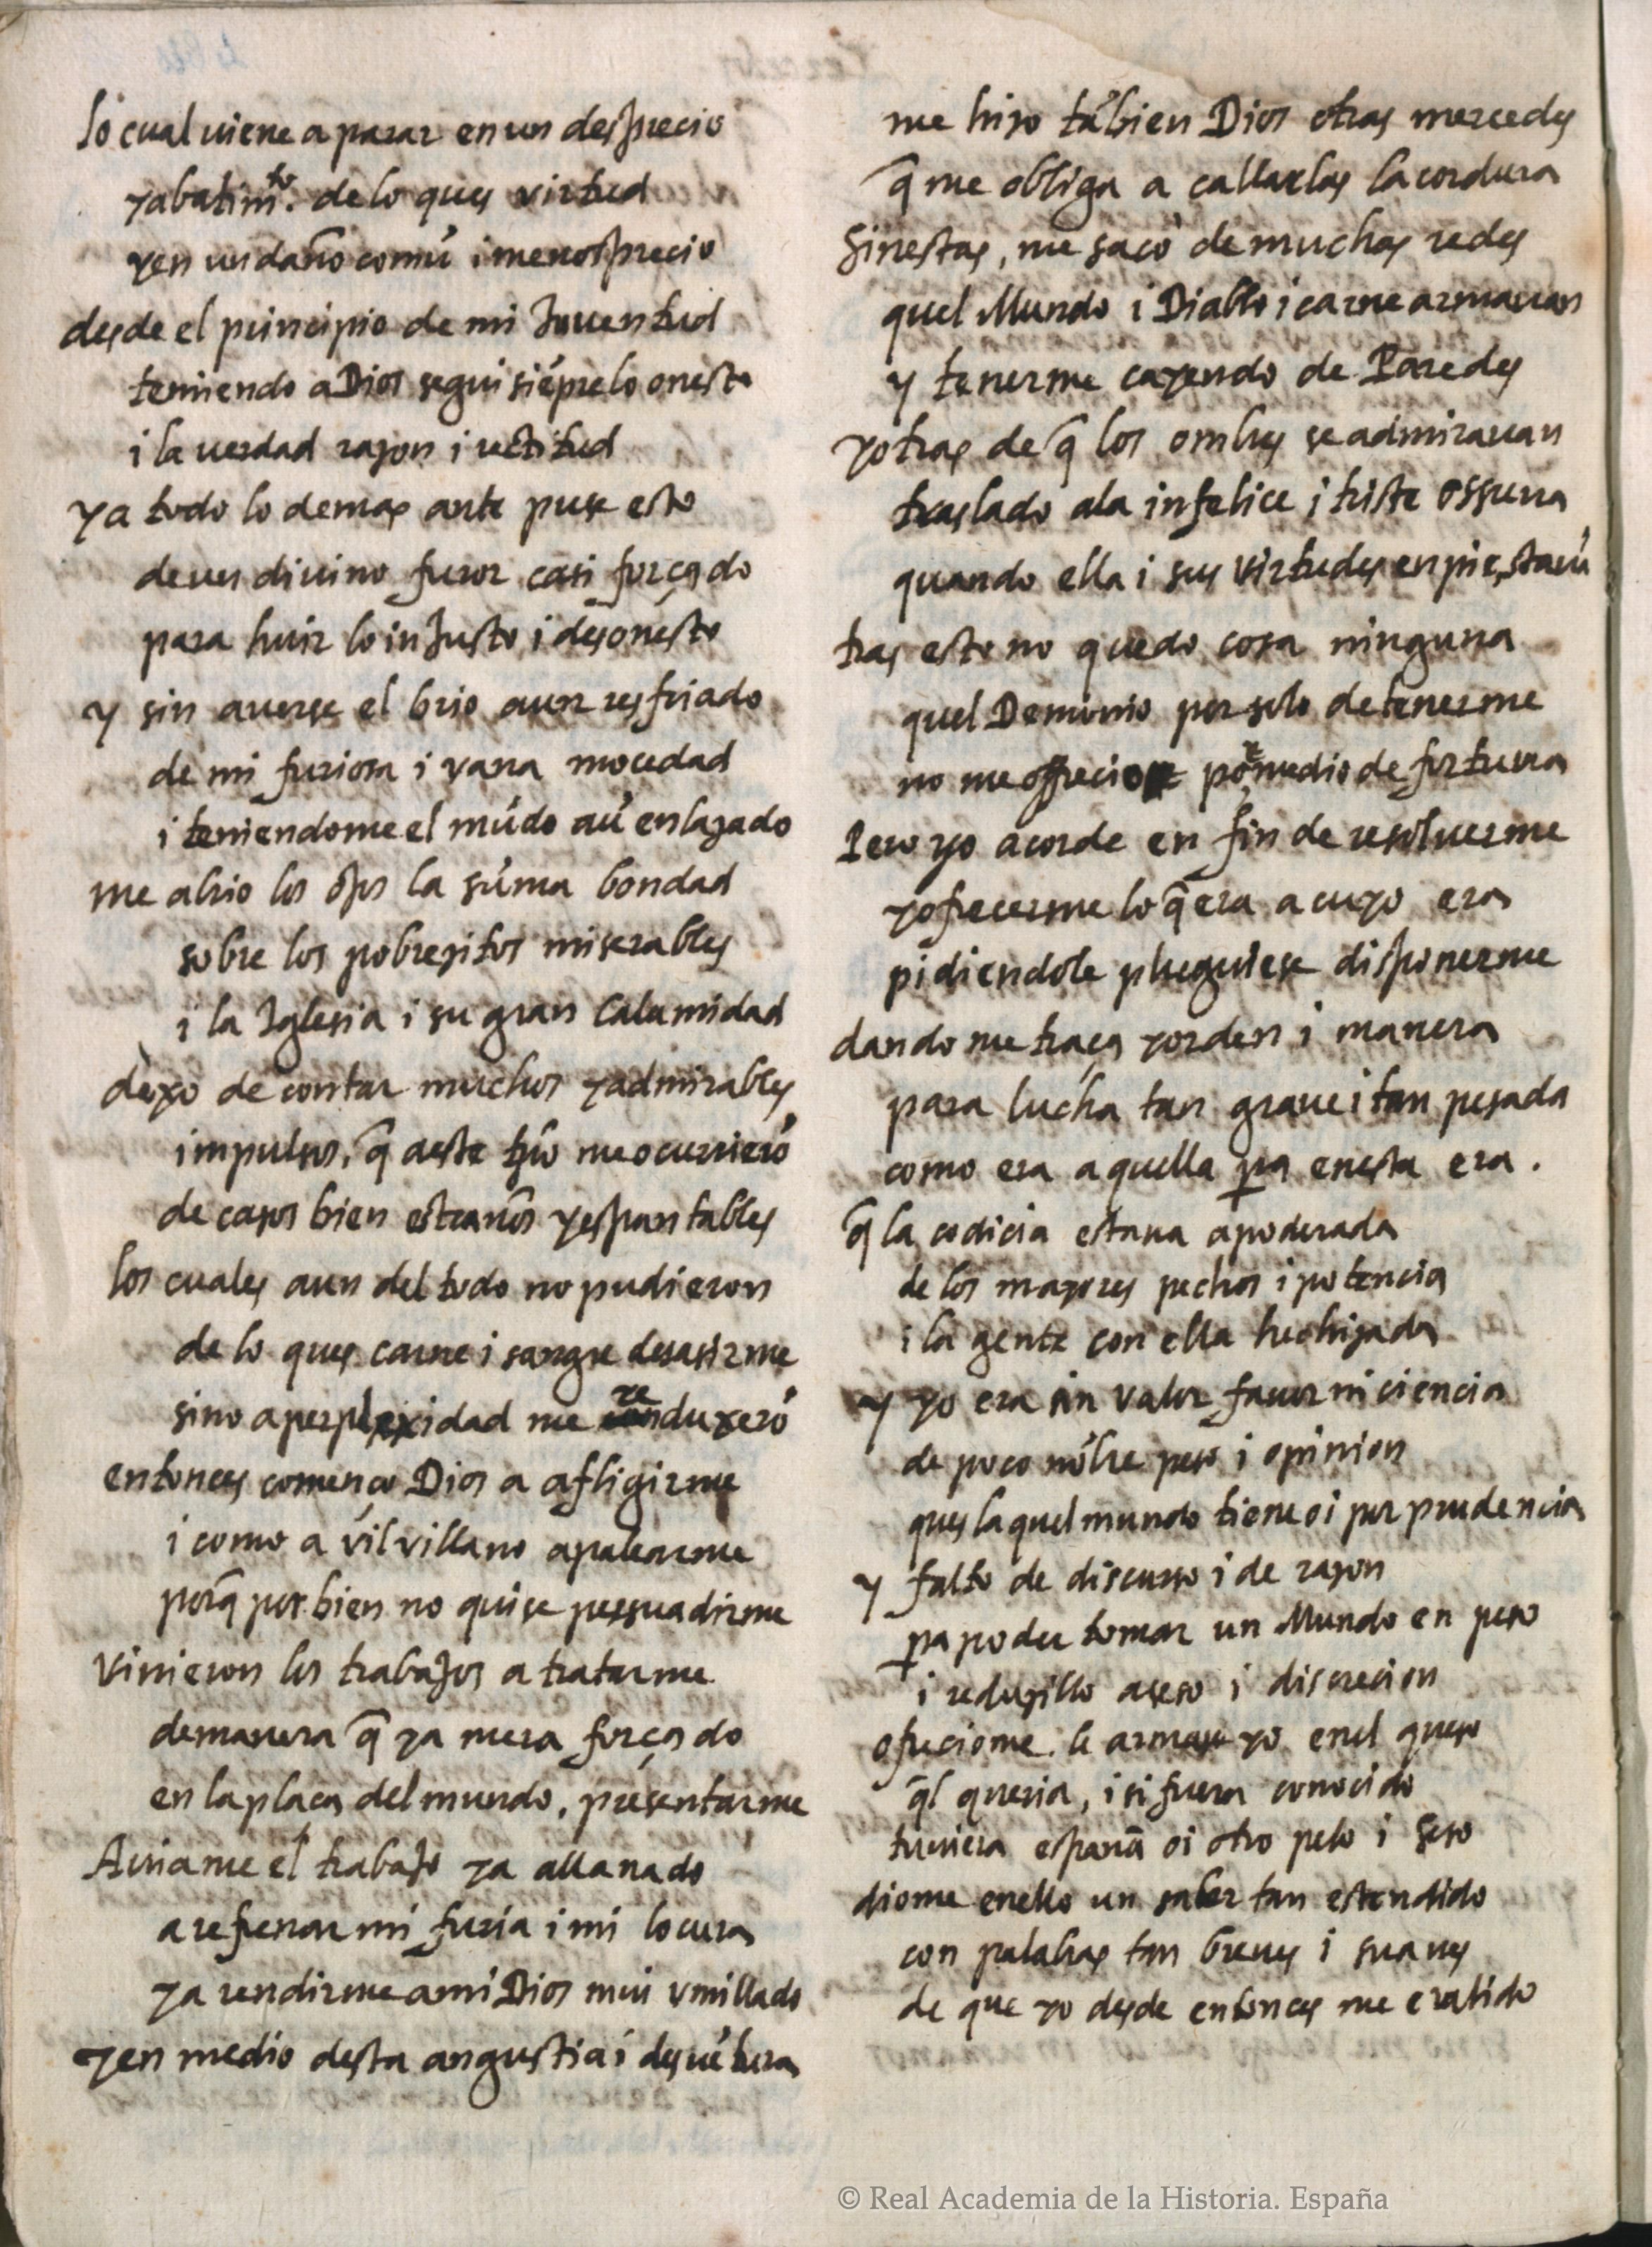 lo cual uiene a parar en un desprecio
y abatimto. de lo ques virtud
y en un daño comũ i menosprecio
desde el principio de mi Juuentud
temiendo a Dios segui siẽpre lo onesto
i la uerdad razon i rectitud
y a todo lo demas ante puse esto
de un diuino furor casi forçado
para huir lo inJusto i desonesto
y sin auerse el brio aun resfriado
de mi furiosa i vana mocedad
i teniendome el mũdo aũ enlazado
me abrio los oJos la sũma bondad
sobre los pobrezitos miserables
i la Iglesia i su gran Calamidad
dexo de contar muchos y admirables
impulsos, q̃ deste tpõ me ocurrierõ
de casos bien estraños y espantables
los cuales aun del todo no pudieron
de lo ques carne i sangre desasirme
sino a perplexidad me reduxerõ
entonces començo Dios a afligirme
i como a vil villano apalearme
porq̃ por bien no quise persuadirme
Vinieron los trabaJos a tratarme
de manera q̃ ya mera forçado
en la plaça del mundo, presentarme
Auiame el trabaJo ya allanado
a refrenar mi furia i mi locura
y a rendirme a mi Dios mui vmillado
y en medio desta angustia i desuẽtura
me hizo tãbien Dios otras mercedes
q̃ me obliga a callarlas la cordura
Sinestas, me saco de muchas redes
quel Mundo i Diablo i carne armauan
y tenerme cayendo de Paredes
y otras de q̃ los ombres se admirauan
traslado a la infelice i triste Ossuna
quando ella i sus virtudes en pie, stauã
tras esto no quedo cosa ninguna
quel Demonio por solo detenerme
no me offrecio por medio de fortuna
Pero yo acorde en fin de resoluerme
y ofrecerme lo q̃ era a cuyo era
pidiendole pluguiese disponerme
dandome traça y orden i manera
para lucha tan graue i tan pesada
como era aquella pa en esta era.
q̃ la codicia estaua apoderada
de los mayores pechos i potencia
i la gente con ella hechizada
y yo era sin valor fauor ni ciencia
de poco nõbre peso i opinion
ques la quel mundo tiene oi por prudencia
y falto de discurso i de razon
pa poder tomar un Mundo en peso
i reduzillo a seso i discrecion
ofreciome le armase yo en el queso
q̃l queria, i si fuera conocido
tuuiera españa oi otro pelo i seso
diome en ello un saber tan estendido
con palabras tan breues i suaues
de que yo desde entonces me e ualido
© Real Academia de la Historia. España